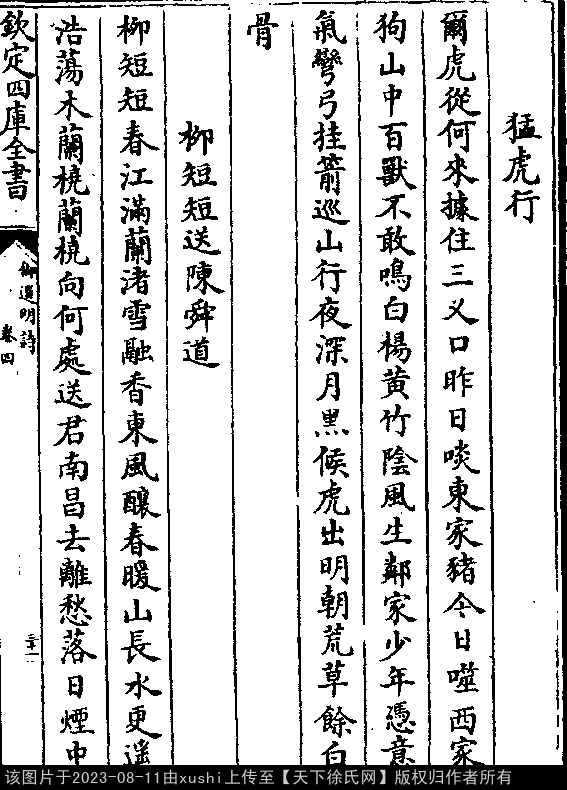 猛虎行
爾虎從何來據住三义口昨日啖東家豬今日噬西家
狗山中百獸不敢鳴白楊黃竹陰風生鄰家少年憑意
氣彎弓挂箭巡山行夜深月黑候虎出明朝荒草餘白
骨
柳短短送陳舜道
柳短短春江滿蘭渚雪融香東風釀春暖山長水更遥
浩蕩木蘭橈蘭橈向何處送君南昌去離愁落日煙中
欽定四庫全書
御選明詩
卷四
三十一
该图片于2023-08-11由xushi上传至【天下徐氏网】版权归作者所有